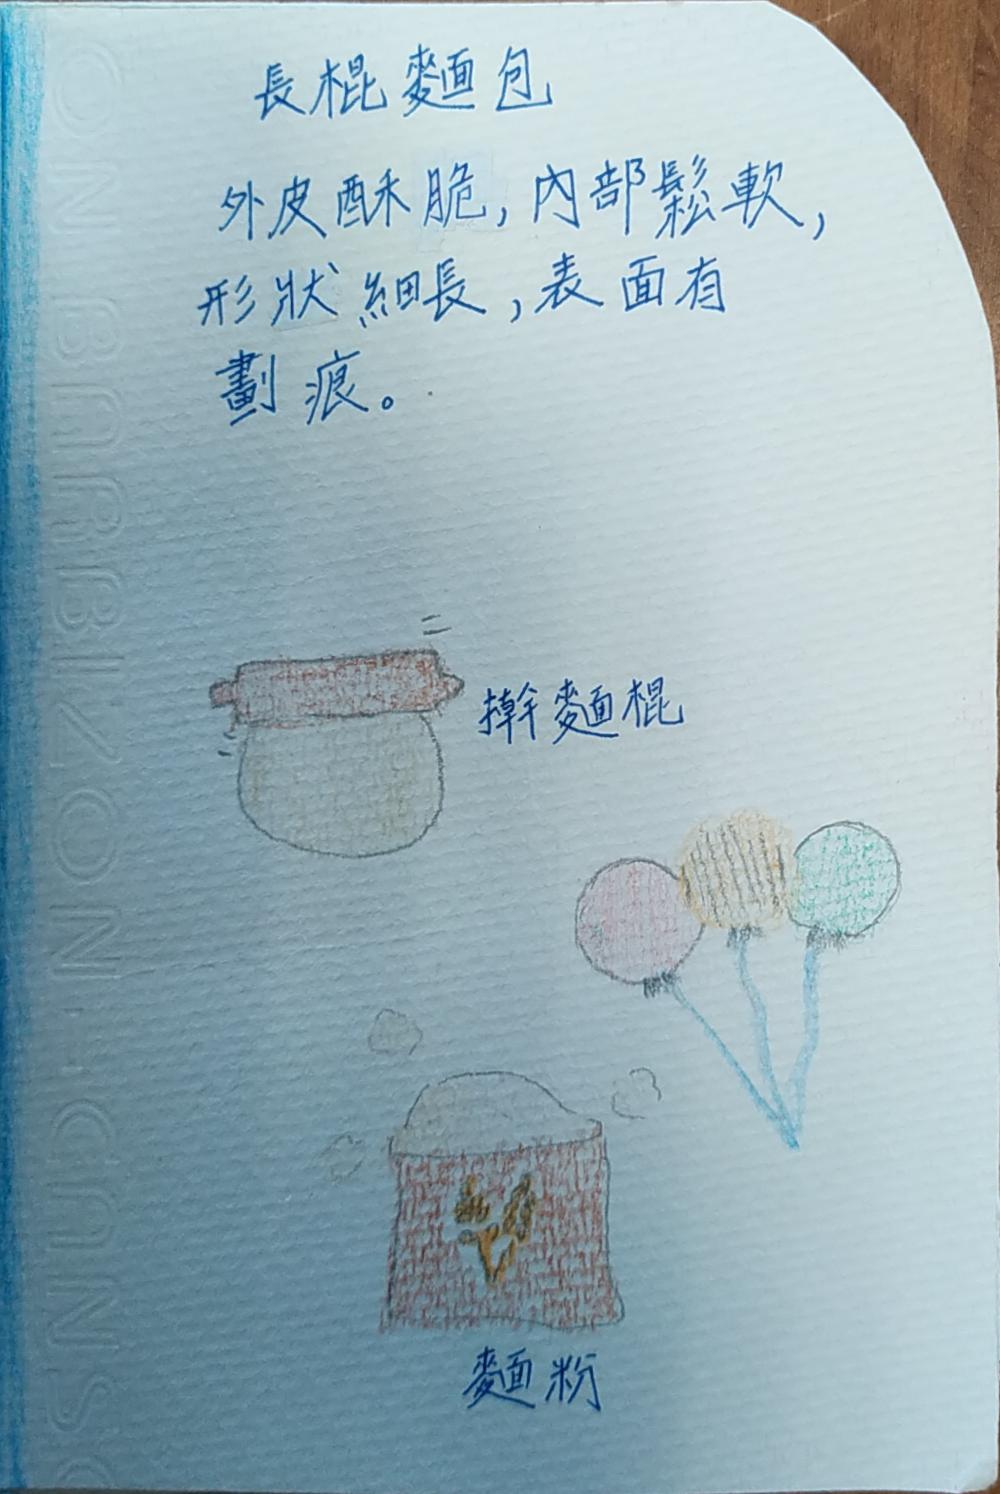 長棍麵包
外皮酥脆,內部鬆軟,
形狀細長,表面有
劃痕。
擀麵棍
麵粉